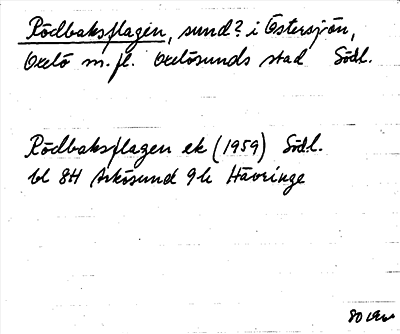 Rödbaksflagen, sund? i Östersjön,
Oxelö m. fl. Oxelösunds stad Södl.
Rödbaksflagen ek (1959) Södl.
bl 8H Arkösund 9h Hävringe
80